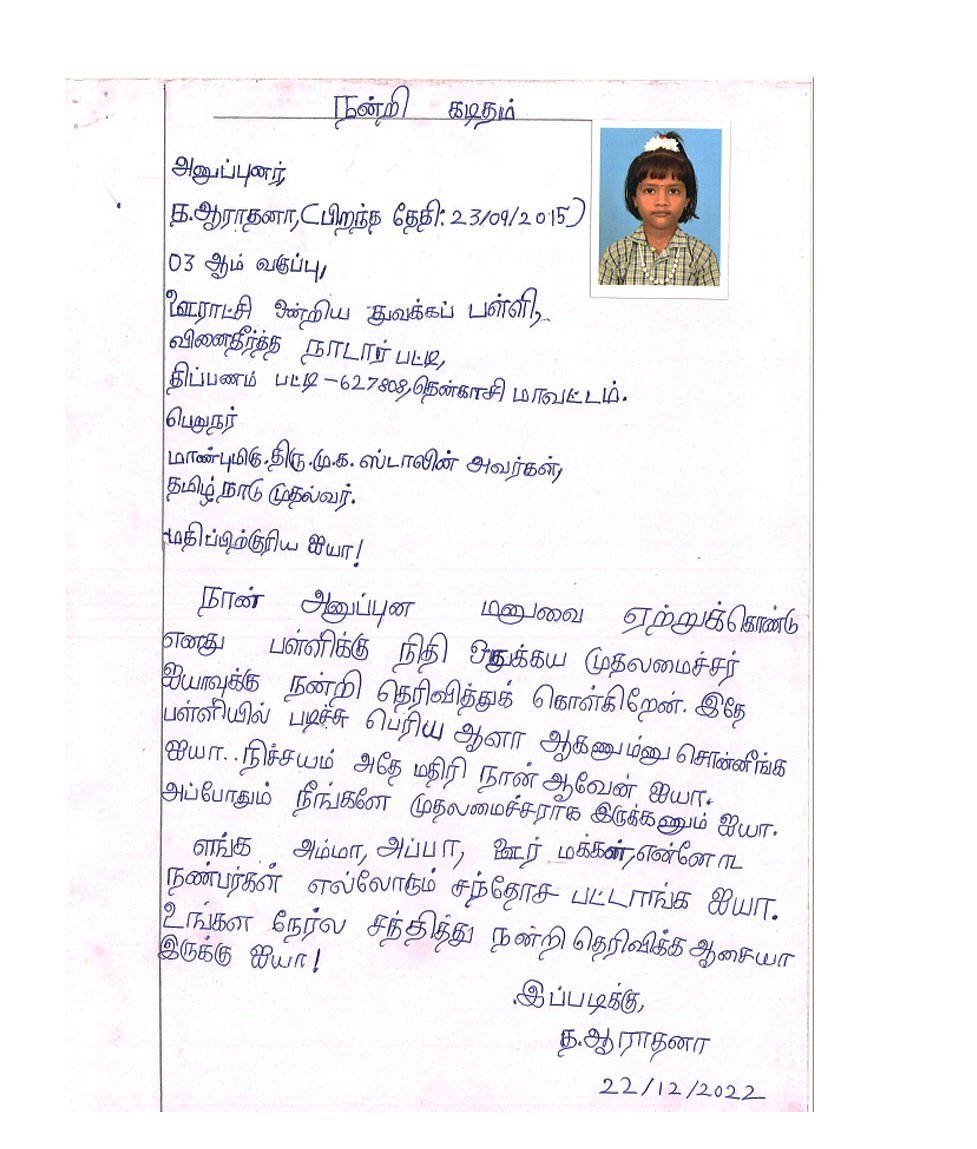 நன்றி கடிதம்
அனுப்புனர்,
த.ஆராதனா,(பிறந்த தேதி: 23/09/2015)
03 ஆம் வகுப்பு,
ஊராட்சி ஒன்றிய துவக்கப் பள்ளி,
வினைதீர்த்த நாடார் பட்டி,
திப்பணம் பட்டி - 627808,தென்காசி மாவட்டம்.
பெறுநர்
மாண்புமிகு.திரு.மு.க. ஸ்டாலின் அவர்கள்,
தமிழ் நாடு முதல்வர்.
மதிப்பிற்குரிய ஐயா!
நான் அனுப்புன மனுவை ஏற்றுக்கொண்டு
எனது பள்ளிக்கு நிதி ஒதுக்கய முதலமைச்சர்
ஐயாவுக்கு நன்றி தெரிவித்துக் கொள்கிறேன். இதே
பள்ளியில் படிச்சு பெரிய ஆளா ஆகணும்னு சொன்னீங்க
ஐயா..நிச்சயம் அதே மதிரி நான் ஆவேன் ஐயா.
அப்போதும் நீங்களே முதலமைச்சராக இருக்கணும் ஐயா.
எங்க அம்மா, அப்பா, ஊர் மக்கள்,என்னோட
நண்பர்கள் எல்லோரும் சந்தோச பட்டாங்க ஐயா.
உங்கள நேர்ல சந்தித்து நன்றி தெரிவிக்க ஆசையா
இருக்கு ஐயா!
இப்படிக்கு,
த.ஆராதனா
22/12/2022